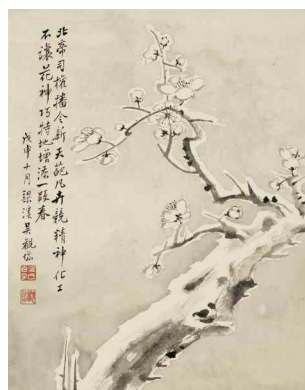 北帝司權播令新天葩凡卉競精神化工
不讓花神巧特地增添一段春
戊申十月梁溪吳觀岱